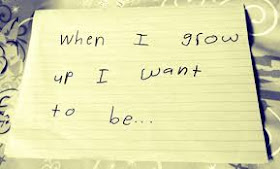 when I grow
up I want
to be...